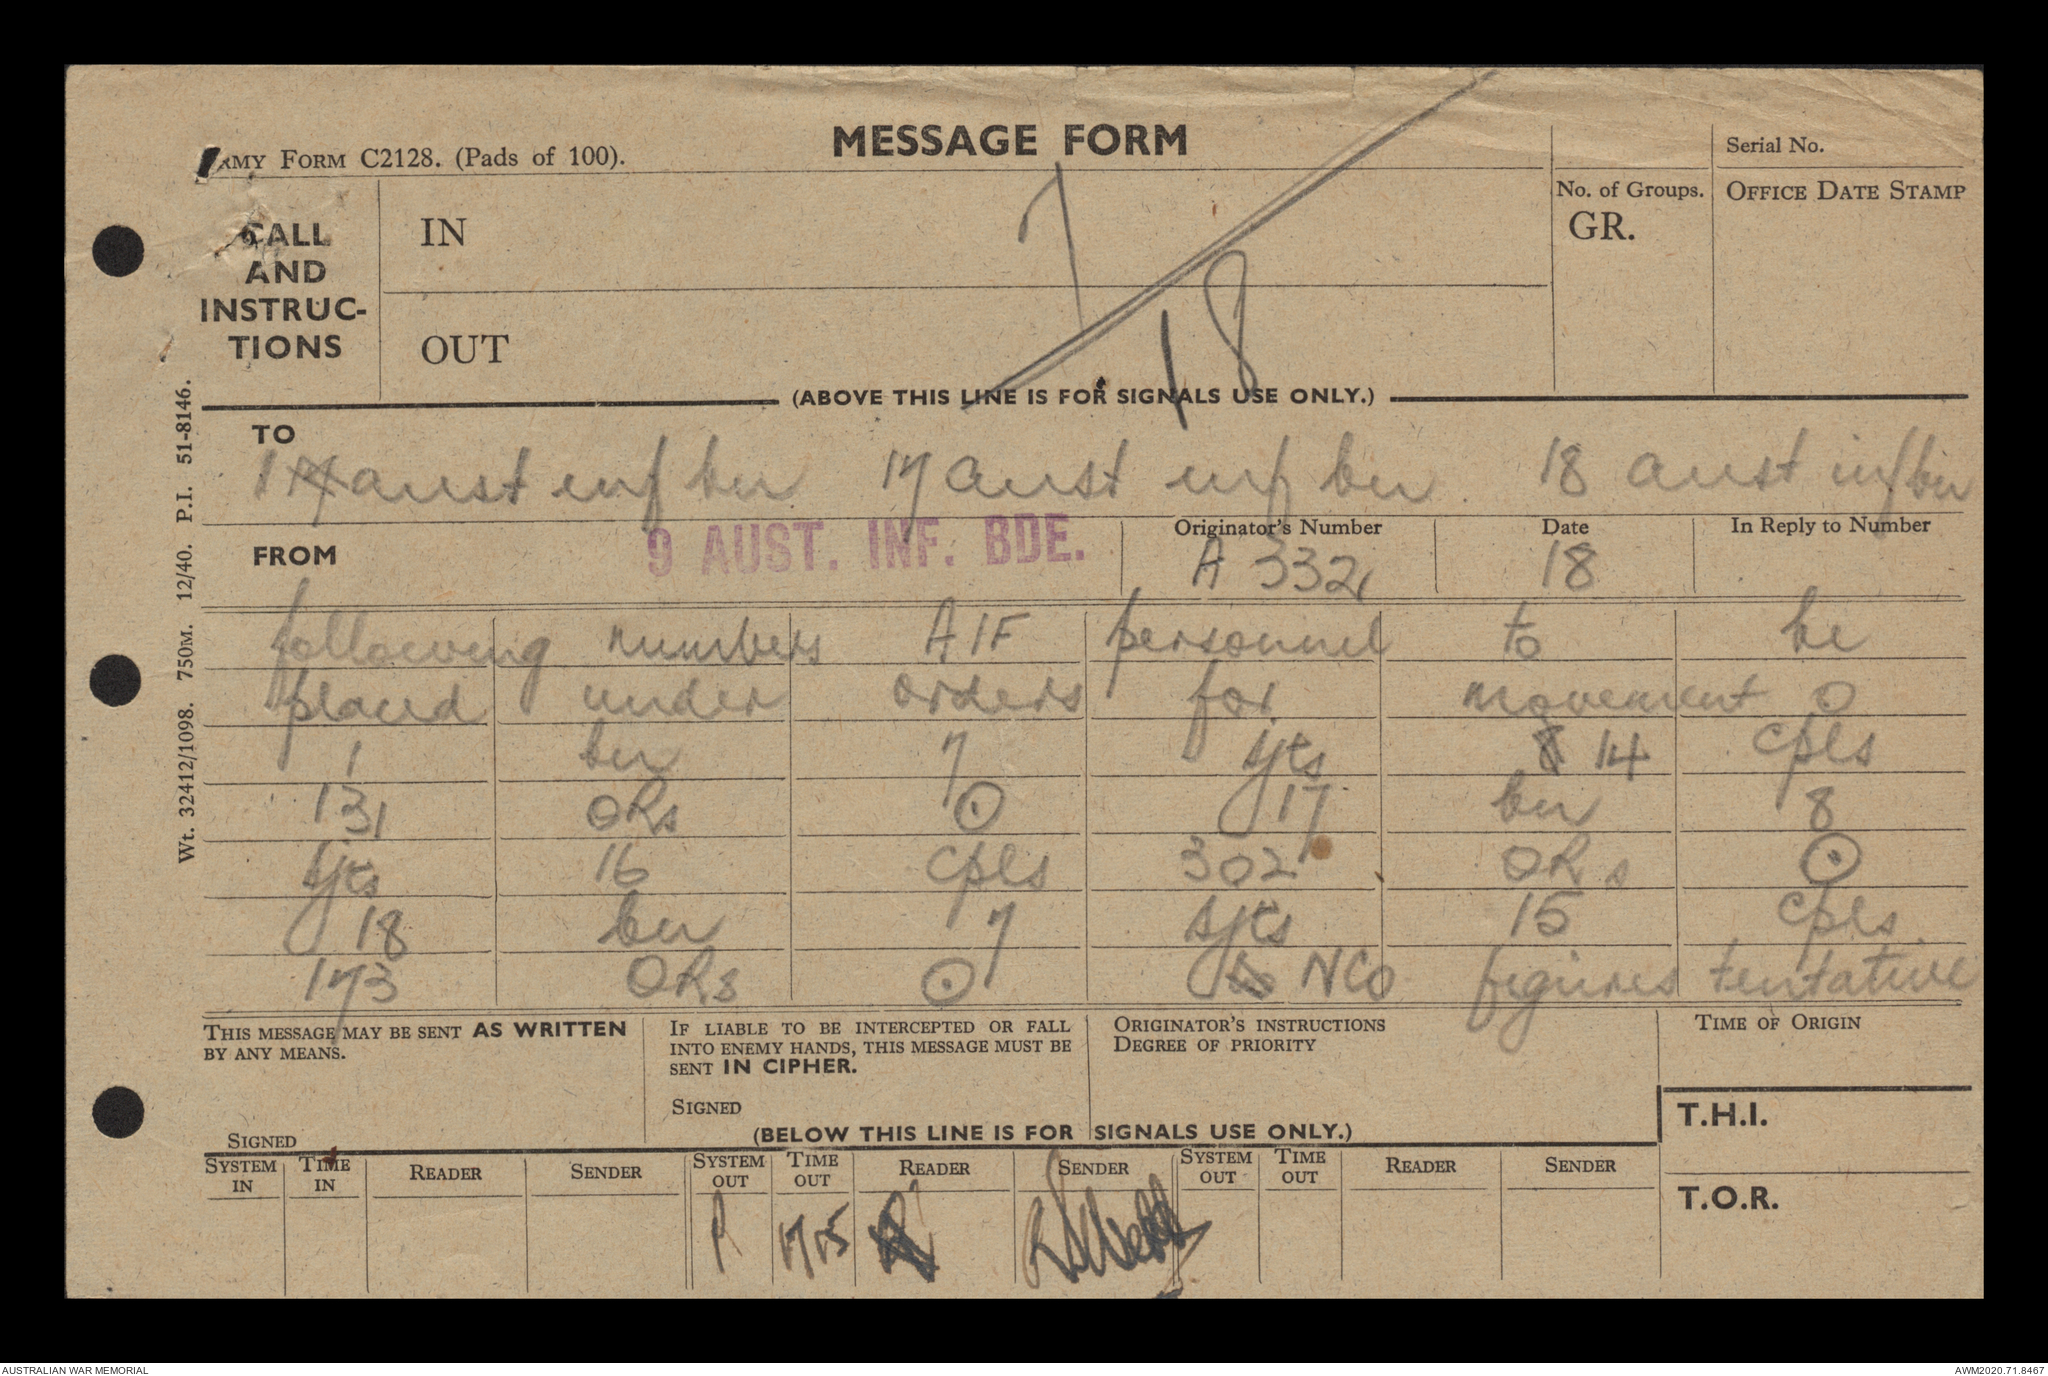 MESSAGE FORM
ARMY FORM C2128. (Pads of 100).
Serial No.
CALL AND INSTRUC-TIONS
IN
7
No. of Groups.
GR.
OFFICE DATE STAMP
OUT
18
(ABOVE THIS LINE IS FOR SIGNALS USE ONLY.)
Wt. 32412/1098. 750M. 12/40. P.I. 51-8146.
TO
1 aust inf bn 17 aust inf bn. 18 aust inf bn
FROM
9 AUST. INF. BDE.
Originator's Number
A 332
Date
18
In Reply to Number
following numbers AIF personnel to be
placed under orders for movement O
1 bn 7 sjts 14 cpls
131 ORs ⊙ 17 bn 8
sjts 16 cpls 302 ORs ⊙
18 bn 7 sjts 15 cpls
173 ORs ⊙ NCO figures tentative
THIS MESSAGE MAY BE SENT AS WRITTEN
BY ANY MEANS.
SIGNED
IF LIABLE TO BE INTERCEPTED OR FALL
INTO ENEMY HANDS, THIS MESSAGE MUST BE
SENT IN CIPHER.
SIGNED
ORIGINATOR'S INSTRUCTIONS
DEGREE OF PRIORITY
TIME OF ORIGIN
T.H.I.
T.O.R.
(BELOW THIS LINE IS FOR SIGNALS USE ONLY.)
SYSTEM IN TIME IN READER SENDER SYSTEM OUT TIME OUT READER SENDER SYSTEM OUT TIME OUT READER SENDER
P 1715
AUSTRALIAN WAR MEMORIAL
AWM2020.71.8467